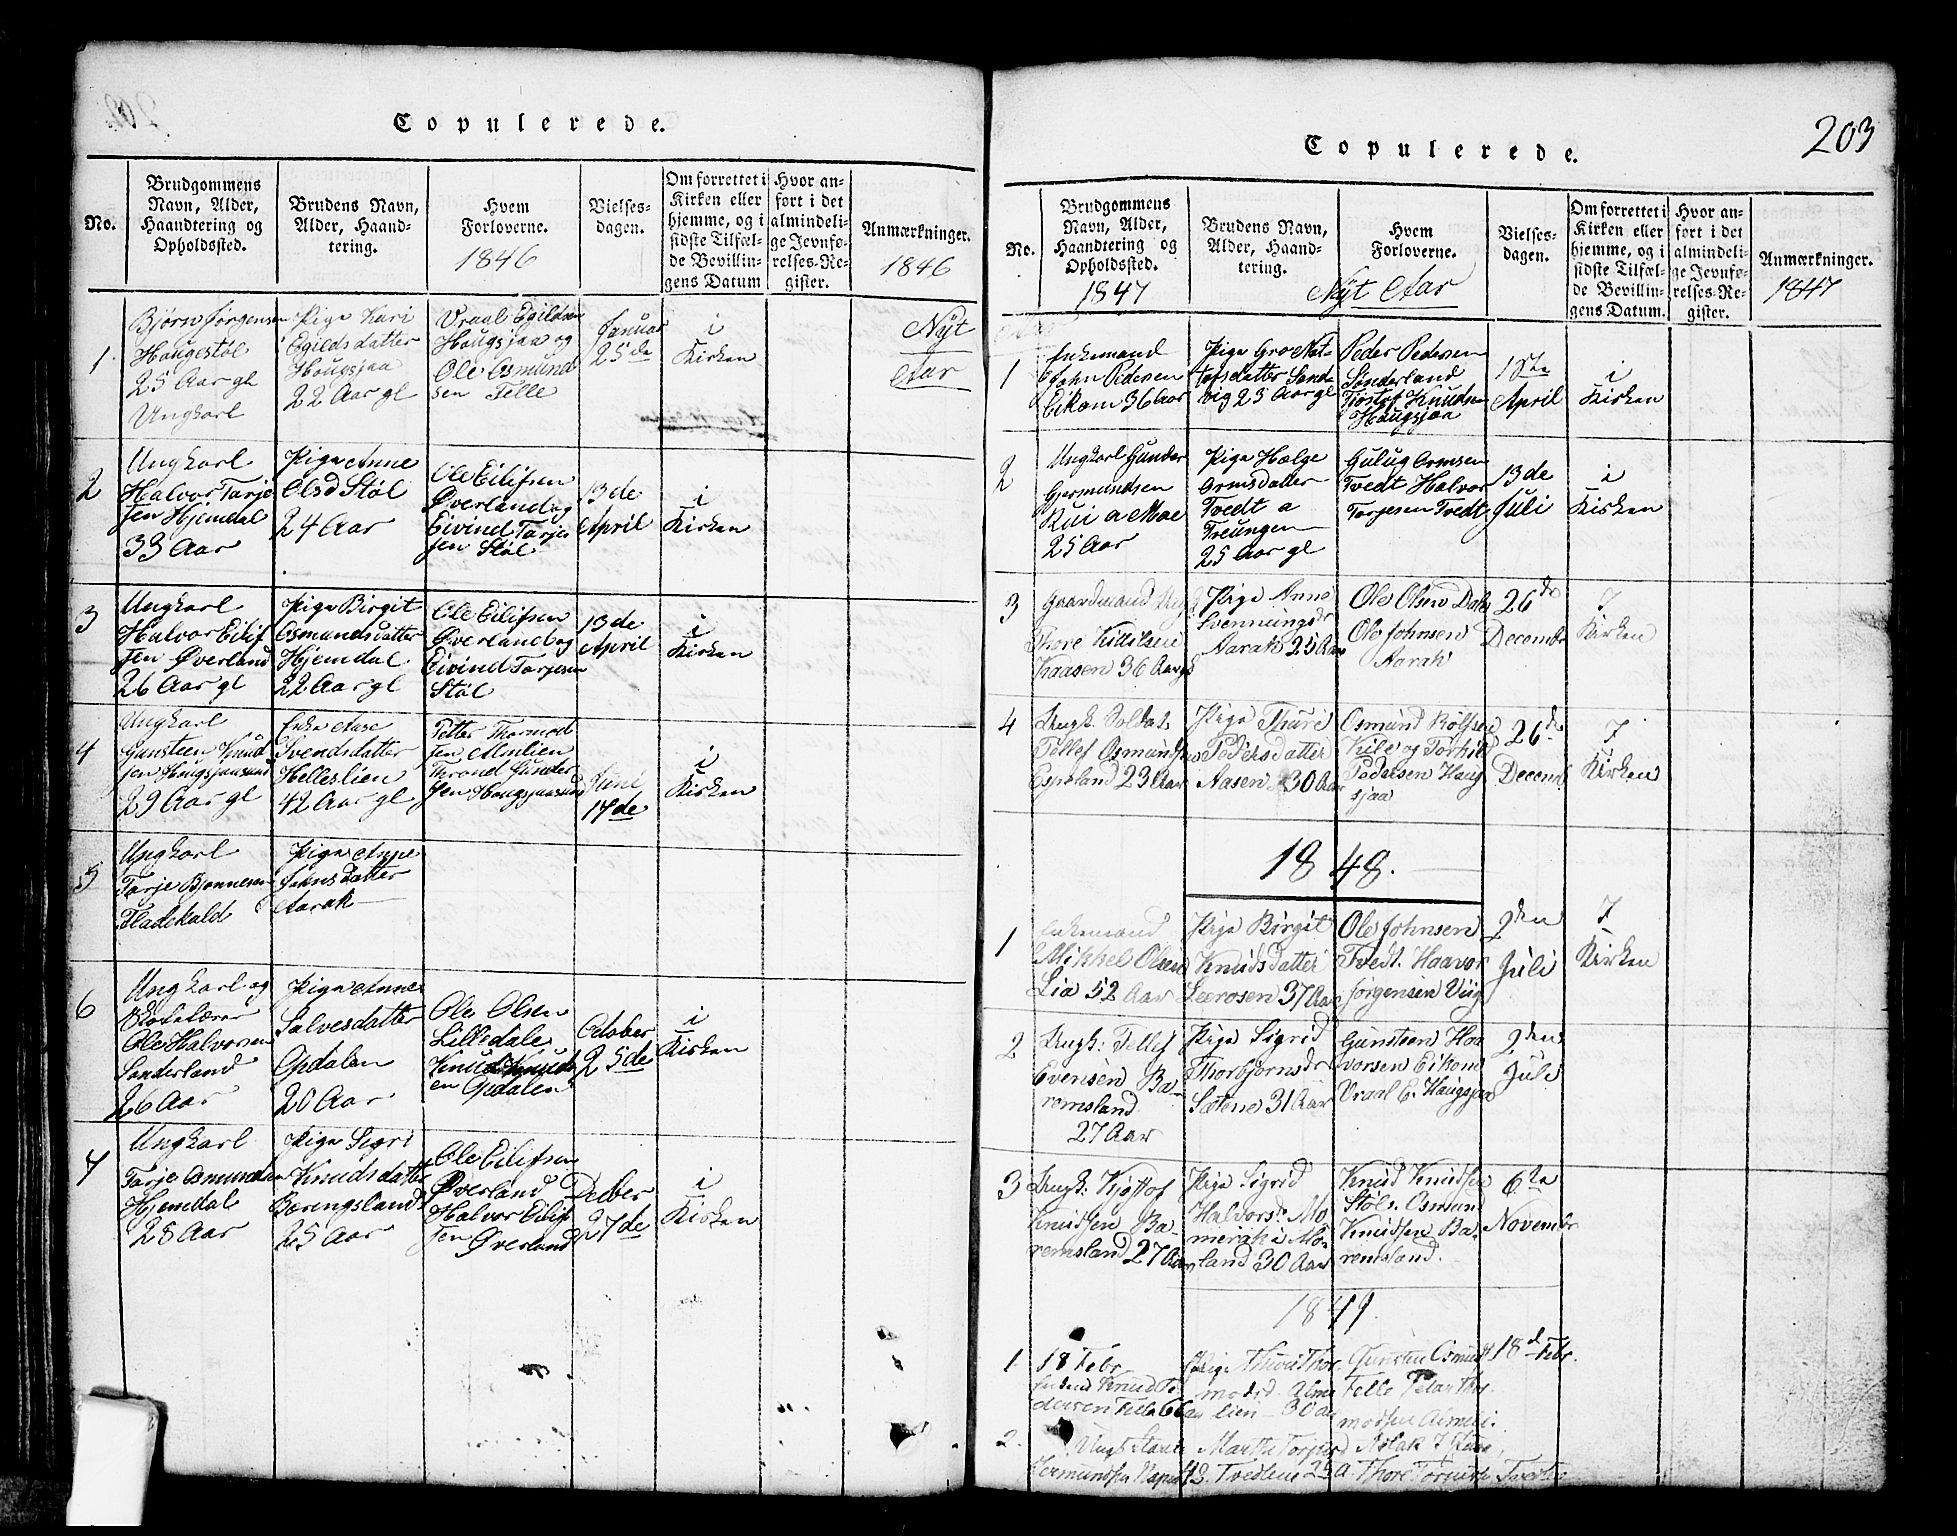 Copulerede.
No.
Brudgommens
Navn, Alder,
Haandtering og
Opholdssted.
Brudens Navn,
Alder, Haand-
tering.
Hvem
Forloverne.
1846
Vielses-
dagen.
Om forrettet i
Kirken eller
hjemme, og i
sidste Tilfæl-
de Bevillin-
gens Datum
Hvor an-
ført i det
almindeli-
ge Jevnfø-
relses-Re-
gister.
Anmærkninger.
1846
Nyt
Aar
1
Bjørn Jørgensen
Haugestøl
25 Aar gl
Ungkarl
Pige Kari
Egildsdatter
Hougsjaa
22 Aar gl
Vraal Egildsen
Hougsjaa og
Ole Osmund
sen Felle
Januar
25de
i
Kirken
2
Ungkarl
Halvor Tarje
sen Hjemdal
33 Aar
Pige Anne
Olsd Støl
24 Aar
Ole Eilifsen
Øverland og
Eivind Tarje
sen Støl
13de
April
i
Kirken
3
Ungkarl
Halvor Eilif
sen Øverland
26 Aar gl
Pige Birgit
Osmundsdatter
Hjemdal
22 Aar gl
Ole Eilifsen
Øverland og
Eivind Tarjesen
Støl
13de
April
i
Kirken
4
Ungkarl
Gunsteen Knud
sen Hougsjaasund
29 Aar gl
Enke Aase
Svendsdatter
Helleslien
42 Aar gl
Petter Thormod
sen Almlien
Thrond Gunster
sen Hougsjaasund
Juni
17de
i
Kirken
5
Ungkarl
Tarje Bjønnesen
Fladekald
Pige Anne
Jensdatter
Aarak
6
Ungkarl og
Skolelærer
Ole Halvorsen
Sønderland
26 Aar
Pige Anne
Salvesdatter
Opdalen
20 Aar
Ole Olsen
Lilledale
Knud Knuds
en Opdalen
October
25de
i
Kirken
7
Ungkarl
Tarje Osmundsen
Hjemdal
28 Aar
Pige Segri
Knudsdatter
Børengsland
25 Aar
Ole Eilifsen
Øverland
Halvor Eilif
sen Øverland
Decber
27de
i
Kirken
203
Copulerede.
No.
Brudgommens
Navn, Alder,
Haandtering og
Opholdssted.
1847
Brudens Navn,
Alder, Haand-
tering.
Hvem
Forloverne.
Nyt Aar
Vielses-
dagen.
Om forrettet i
Kirken eller
hjemme, og i
sidste Tilfæl-
de Bevillin-
gens Datum.
Hvor an-
ført i det
almindeli-
ge Jevnfø-
relses-Re-
gister.
Anmærkninger.
1847
1
Enkemand
John Pedersen
Eikom 36 Aar
Pige Gro Not-
tofsdatter Sand-
vig 23 Aar gl
Peder Pedersen
Sønderland
Tjøstof Knudsen
Haugsjaa
1ste
April
i
Kirken
2
Ungkarl Gunder
Germundsen
Rui a Moe
25 Aar
Pige Hælge
Ormsdatter
Tvedt a
Treungen
25 Aar gl
Gulug Ormsen
Tvedt Halvor
Torjesen Tvedt
13de
Juli
i
Kirken
3
Gaardmand Ungk
Thore Kittilsen
Kaasen 36 Aar gl
Pige Anne
Svennungsdr
Aarak 25 Aar
Ole Olsen Dale
Ole Johnsen
Aarak
26de
Decembr
I
Kirken
4
Ungk. Soldat
Tellef Osmundsen
Espeland 23 Aar
Pige Thuri
Pedersdatter
Aasen 30 Aar
Osmund Rolfsen
Kile og Torkil
Pedersen Haug
sjaa
26de
Decemb
I
Kirken
1848.
1
Enkemand
Mikkel Olsen
Lia 52 Aar
Pige Birgit
Knudsdatter
Leerosen 37 Aar
Ole Johnsen
Tvedt. Haavor
Jørgensen Viig
2den
Juli
I
Kirken
2
Ungk: Tellef
Evensen Ba-
remsland
27 Aar
Pige Sigrid
Thorbjørnsdr
Sætene 31 Aar
Gunsteen Hal
vorsen Eikom
Vraal E. Haugsjaa
2den
Juli
3
Ungk: Kjøttof
Knudsen Ba-
remsland 27 Aar
Pige Sigrid
Halvorsd. Mo
merak i Mo-
land 30 Aar
Knud Knudsen
Støl. Osmund
Knudsen Ba-
remsland.
6te
Novembr
1849.
1
18 Febr
Knud Pe
dersen Felle 66 aar
Pige Thuri Thor
modsd. Alm
lien 30 aar
Gunsten Osmunds
Felle Peter Thor
modsen Almli.
18d Febr.
2.
Germundsen
Marthe Torjesd
Tvedtene 25 A
Aslak
Thore Torjusen Tvedten